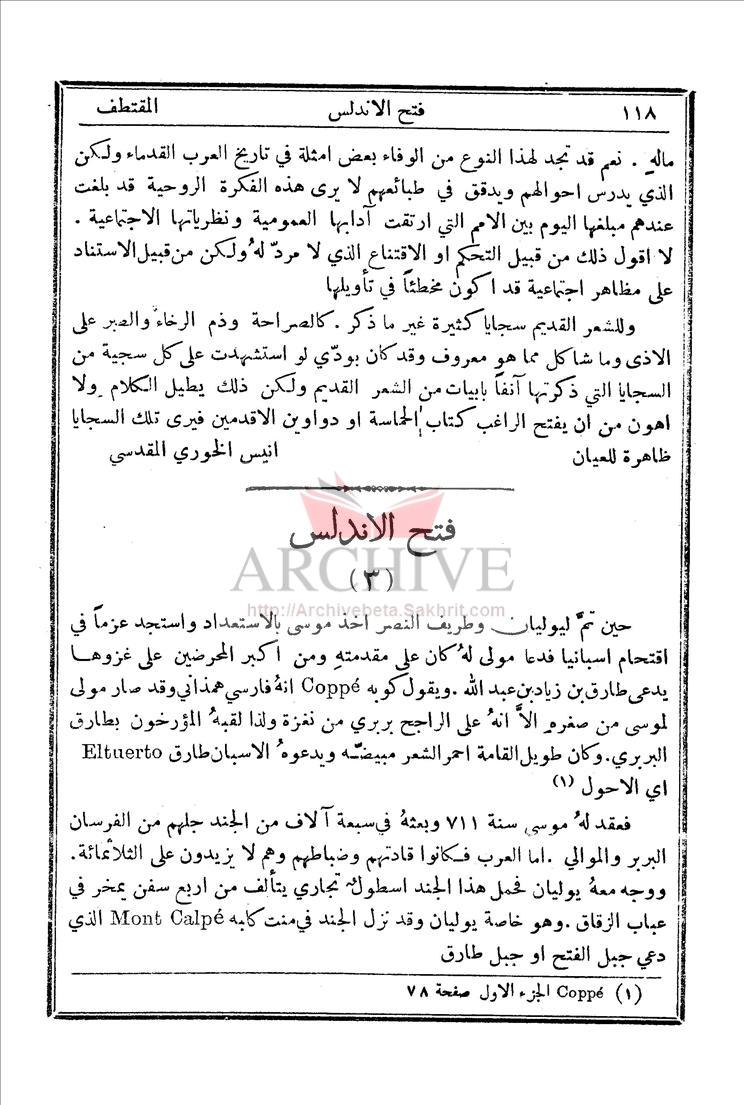 ١١٨ فتح الاندلس المقتطف
ماله . نعم قد تجد لهذا النوع من الوفاء بعض امثلة في تاريخ العرب القدماء ولكن
الذي يدرس احوالهم ويدقق في طبائعهم لا يرى هذه الفكرة الروحية قد بلغت
عندهم مبلغها اليوم بين الامم التي ارتقت آدابها العمومية ونظرياتها الاجتماعية .
لا اقول ذلك من قبيل التحكم او الاقتناع الذي لا مردّ لهُ ولكن من قبيل الاستناد
على مظاهر اجتماعية قد اكون مخطئاً في تأويلها
وللشعر القديم سجايا كثيرة غير ما ذكر . كالصراحة وذم الرخاء والصبر على
الاذى وما شاكل مما هو معروف وقد كان بودّي لو استشهدت على كل سجية من
السجايا التي ذكرتها آنفاً بابيات من الشعر القديم ولكن ذلك يطيل الكلام ولا
اهون من ان يفتح الراغب كتاب الحماسة او دواوين الاقدمين فيرى تلك السجايا
ظاهرة للعيان انيس الخوري المقدسي
فتح الاندلس
ARCHIVE
(٣)
http://Archivebeta.Sakhrit.com
حين تمَّ ليوليان وطريف النصر اخذ موسى بالاستعداد واستجد عزماً في
اقتحام اسبانيا فدعا مولى لهُ كان على مقدمته ومن اكبر المحرضين على غزوها
يدعى طارق بن زياد بن عبد الله . ويقول كوبه Coppé انهُ فارسي همذاني وقد صار مولى
لموسى من صغره الاَّ انهُ على الراجح بربري من نغزة ولذا لقبهُ المؤرخون بطارق
البربري . وكان طويل القامة احمر الشعر مبيضّه ويدعوهُ الاسبان طارق Eltuerto
اي الاحول (١)
فعقد لهُ موسى سنة ٧١١ وبعثهُ في سبعة آلاف من الجند جلهم من الفرسان
البربر والموالي . اما العرب فكانوا قادتهم وضباطهم وهم لا يزيدون على الثلاثمائة .
ووجه معهُ يوليان فحمل هذا الجند اسطول تجاري يتألف من اربع سفن يمخر في
عباب الزقاق . وهو خاصة يوليان وقد نزل الجند في منت كابه Mont Calpé الذي
دعي جبل الفتح او جبل طارق
(١) Coppé الجزء الاول صفحة ٧٨